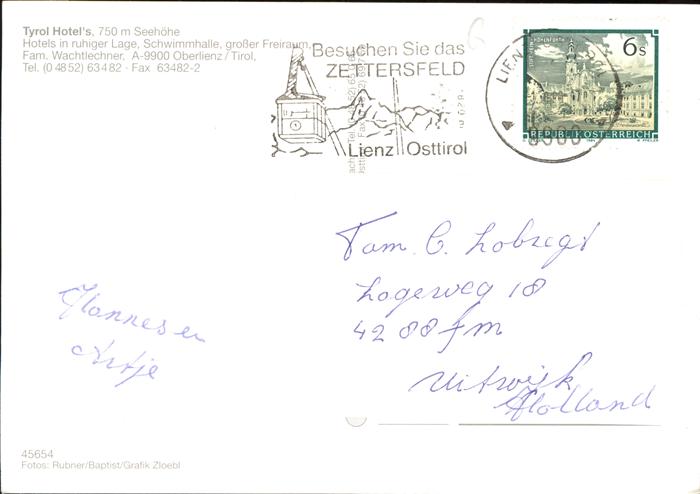 Tyrol Hotel's, 750 m Seehöhe
Hotels in ruhiger Lage, Schwimmhalle, großer Freiraum,
Fam. Wachtlechner, A-9900 Oberlienz / Tirol,
Tel. (0 48 52) 63 4 82 · Fax 63482-2
Besuchen Sie das
ZETTERSFELD
Lienz Osttirol
LIEN
6s
REPUBLIK ÖSTERREICH
Fam. C. Lobregt
Lageweg 18
4288 fm
Uitwijk
Holland
Hannes en
Artje
45654
Fotos: Rubner/Baptist/Grafik Zloebl